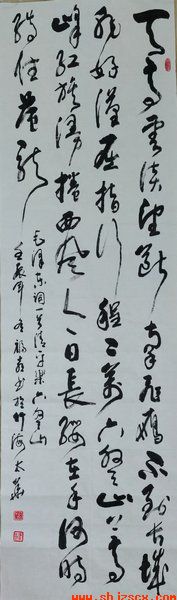 天高云淡望断南飞雁不到长城
非好汉屈指行程二万六盘山上高
峰红旗漫捲西风今日长缨在手何时
缚住苍龙
毛泽东词一首清平乐六盘山
壬辰年
书於竹海
www.shjzscx.com